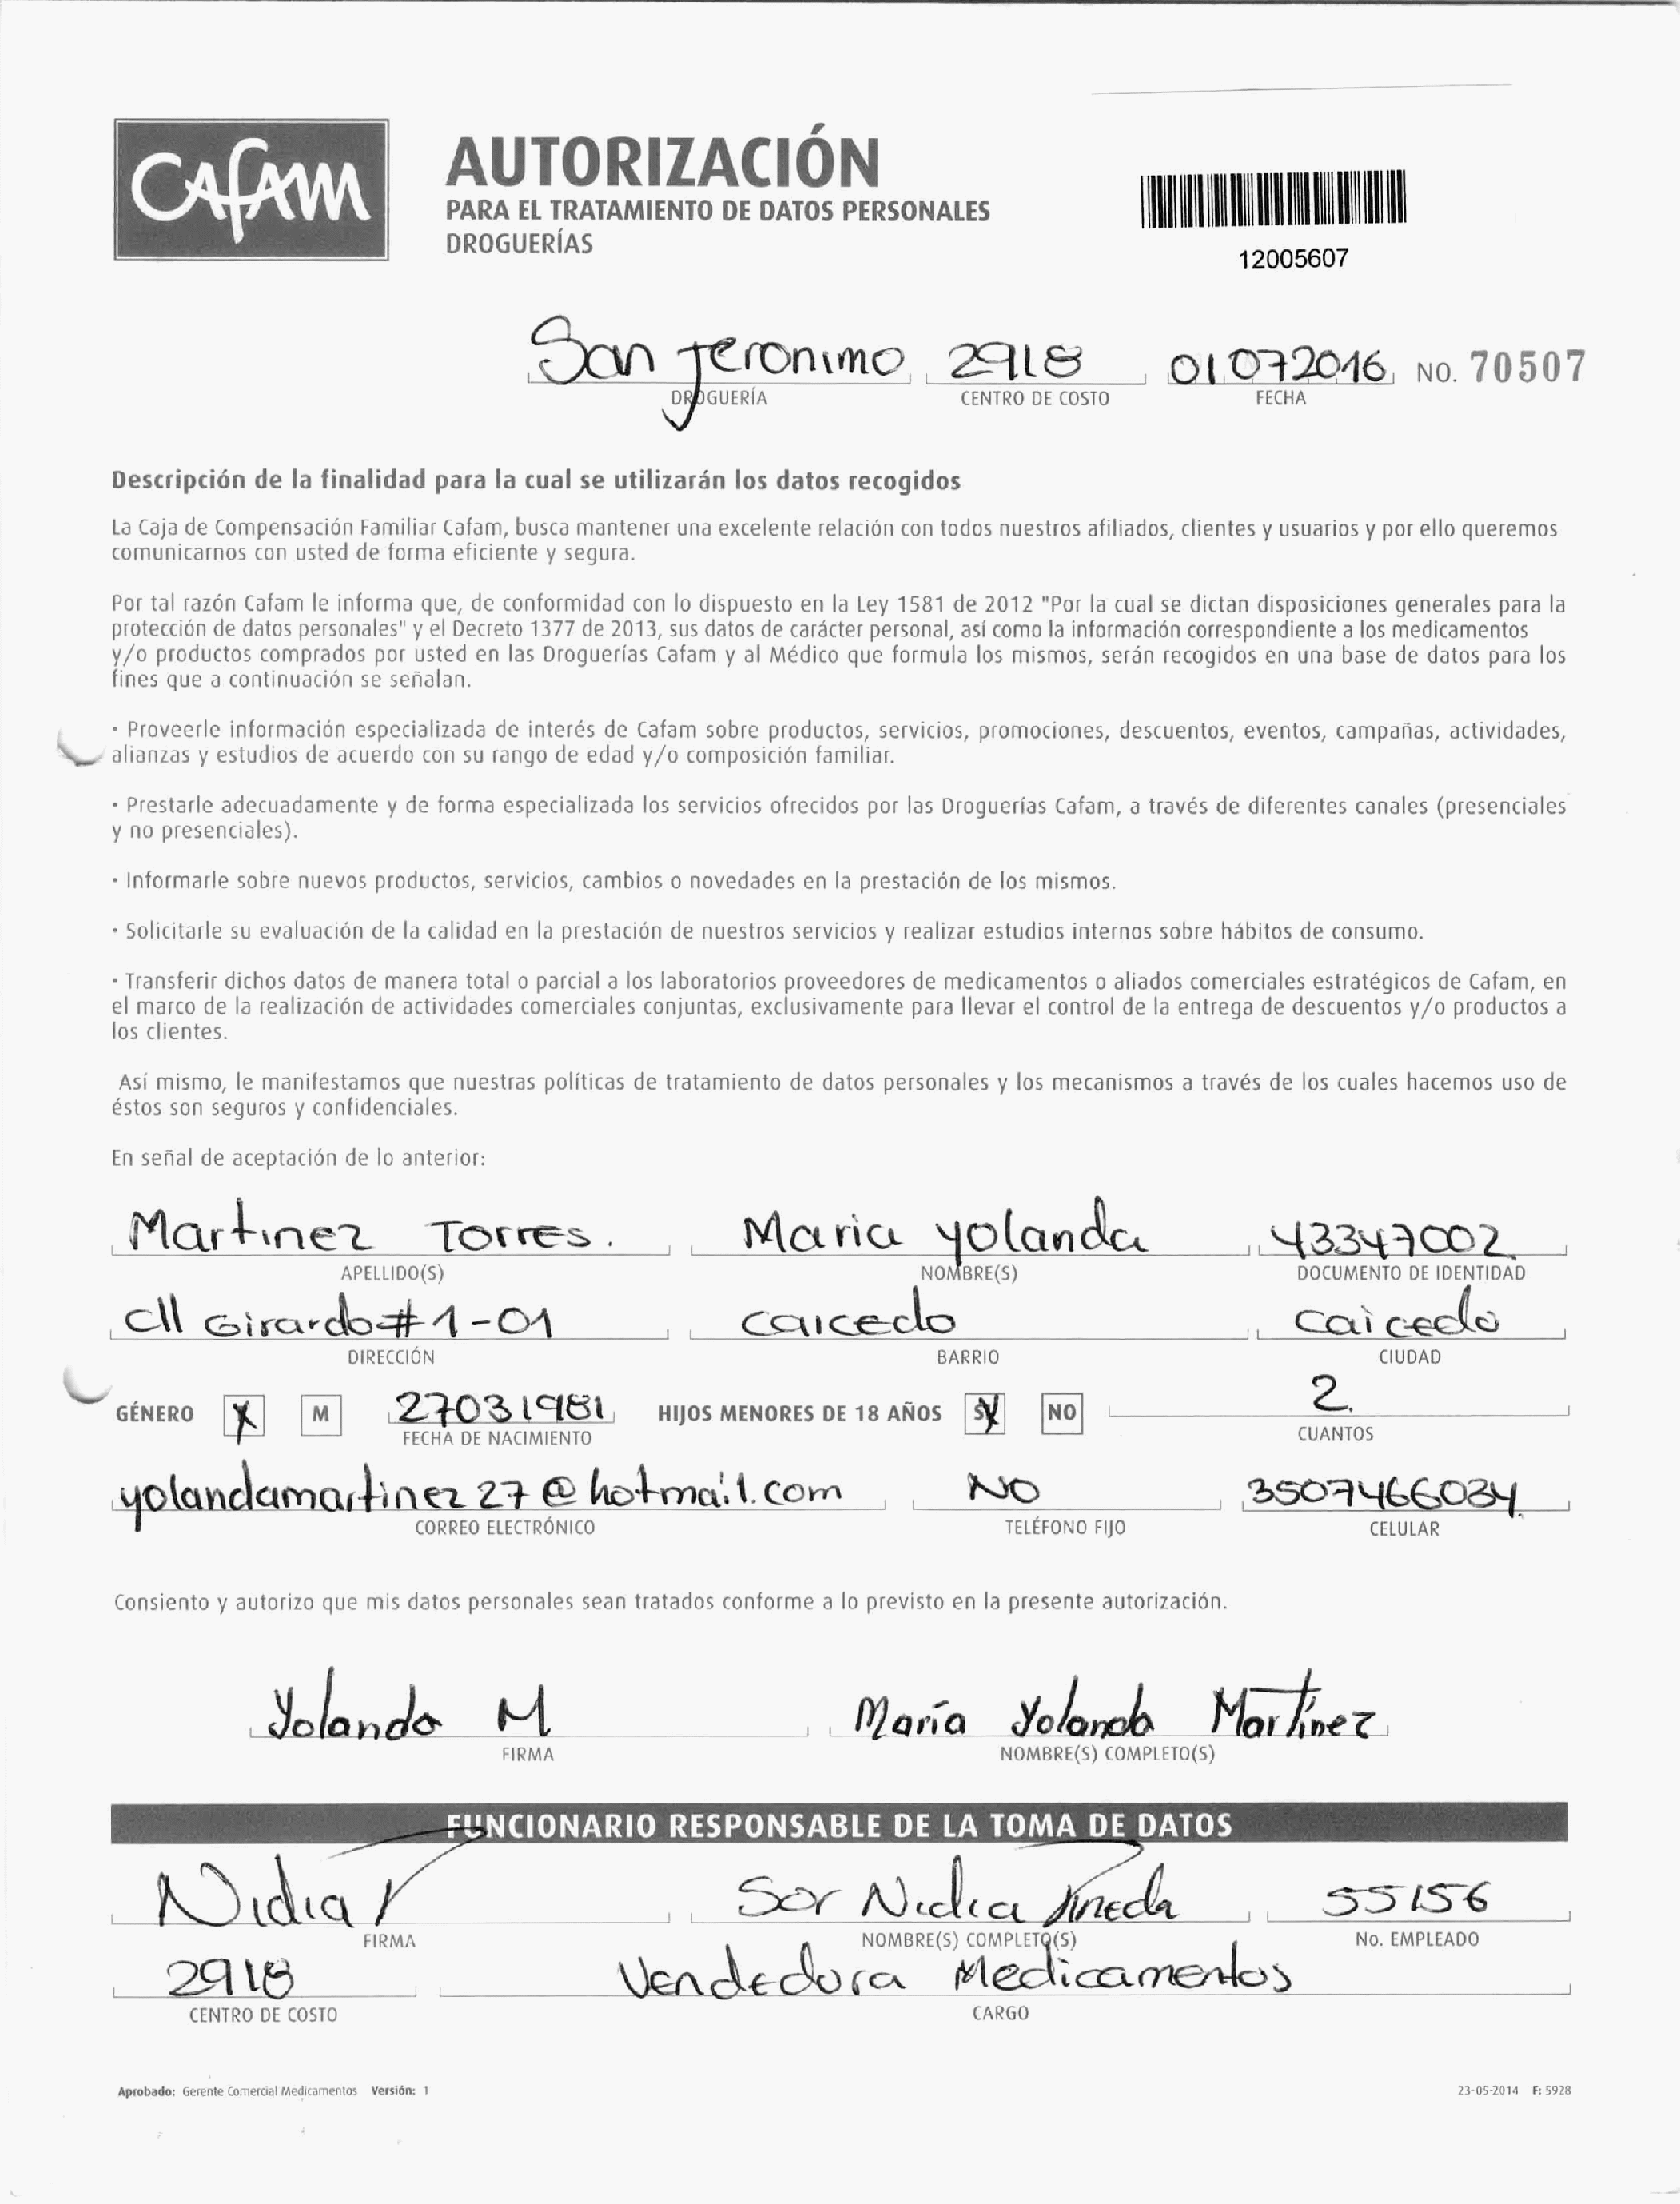 CAFAM
AUTORIZACIÓN
PARA EL TRATAMIENTO DE DATOS PERSONALES
DROGUERÍAS
12005607
San Jeronimo 2918 01072016 NO. 70507
DROGUERÍA CENTRO DE COSTO FECHA
Descripción de la finalidad para la cual se utilizarán los datos recogidos
La Caja de Compensación Familiar Cafam, busca mantener una excelente relación con todos nuestros afiliados, clientes y usuarios y por ello queremos
comunicarnos con usted de forma eficiente y segura.
Por tal razón Cafam le informa que, de conformidad con lo dispuesto en la Ley 1581 de 2012 "Por la cual se dictan disposiciones generales para la
protección de datos personales" y el Decreto 1377 de 2013, sus datos de carácter personal, así como la información correspondiente a los medicamentos
y/o productos comprados por usted en las Droguerías Cafam y al Médico que formula los mismos, serán recogidos en una base de datos para los
fines que a continuación se señalan.
· Proveerle información especializada de interés de Cafam sobre productos, servicios, promociones, descuentos, eventos, campañas, actividades,
alianzas y estudios de acuerdo con su rango de edad y/o composición familiar.
· Prestarle adecuadamente y de forma especializada los servicios ofrecidos por las Droguerías Cafam, a través de diferentes canales (presenciales
y no presenciales).
· Informarle sobre nuevos productos, servicios, cambios o novedades en la prestación de los mismos.
· Solicitarle su evaluación de la calidad en la prestación de nuestros servicios y realizar estudios internos sobre hábitos de consumo.
· Transferir dichos datos de manera total o parcial a los laboratorios proveedores de medicamentos o aliados comerciales estratégicos de Cafam, en
el marco de la realización de actividades comerciales conjuntas, exclusivamente para llevar el control de la entrega de descuentos y/o productos a
los clientes.
Así mismo, le manifestamos que nuestras políticas de tratamiento de datos personales y los mecanismos a través de los cuales hacemos uso de
éstos son seguros y confidenciales.
En señal de aceptación de lo anterior:
Martinez Torres. Maria yolanda 43347002
APELLIDO(S) NOMBRE(S) DOCUMENTO DE IDENTIDAD
Cll Girardo # 1-01 caicedo Caicedo
DIRECCIÓN BARRIO CIUDAD
GÉNERO X M 27031981 HIJOS MENORES DE 18 AÑOS SI NO 2.
FECHA DE NACIMIENTO CUANTOS
yolandamartinez27@hotmail.com NO 3507466034.
CORREO ELECTRÓNICO TELÉFONO FIJO CELULAR
Consiento y autorizo que mis datos personales sean tratados conforme a lo previsto en la presente autorización.
Yolanda M María Yolanda Martínez
FIRMA NOMBRE(S) COMPLETO(S)
FUNCIONARIO RESPONSABLE DE LA TOMA DE DATOS
Nidia P Sor Nidia Pineda 55156
FIRMA NOMBRE(S) COMPLETO(S) No. EMPLEADO
2918 Vendedora Medicamentos
CENTRO DE COSTO CARGO
Aprobado: Gerente Comercial Medicamentos Versión: 1 23-05-2014 F: 5928